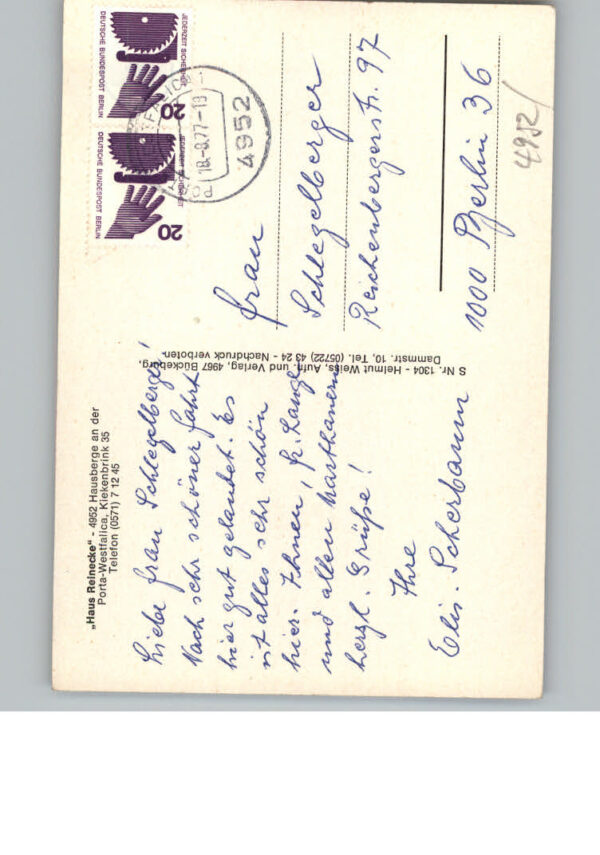 „Haus Reinecke“ - 4952 Hausberge an der
Porta-Westfalica, Kiekenbrink 35
Telefon (0571) 7 12 45
Liebe Frau Schlegelberger!
Nach sehr schöner Fahrt
hier gut gelandet. Es
ist alles sehr schön
hier. Ihnen, Fr. Lange
und allen
herzl. Grüße!
Ihre
Elis. Scherbaum
S Nr. 1304 - Helmut Weiss, Aufn. und Verlag, 4967 Bückeburg,
Dammstr. 10, Tel. (05722) 43 24 - Nachdruck verboten.
DEUTSCHE BUNDESPOST BERLIN
JEDERZEIT SICHERHEIT
20
DEUTSCHE BUNDESPOST BERLIN
JEDERZEIT SICHERHEIT
20
4952
Frau
Schlegelberger
Reichenbergerstr. 97
1000 Berlin 36
4952/